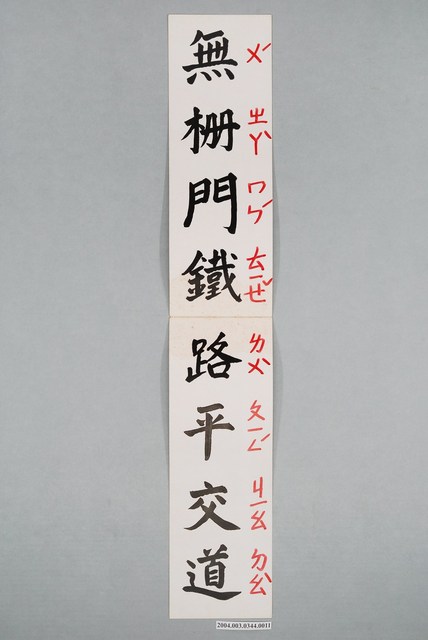 無柵門鐵路平交道
ㄨˊ ㄓㄚˋ ㄇㄣˊ ㄊㄧㄝˇ ㄌㄨˋ ㄆㄧㄥˊ ㄐㄧㄠ ㄉㄠˋ
2004.003.0344.0011